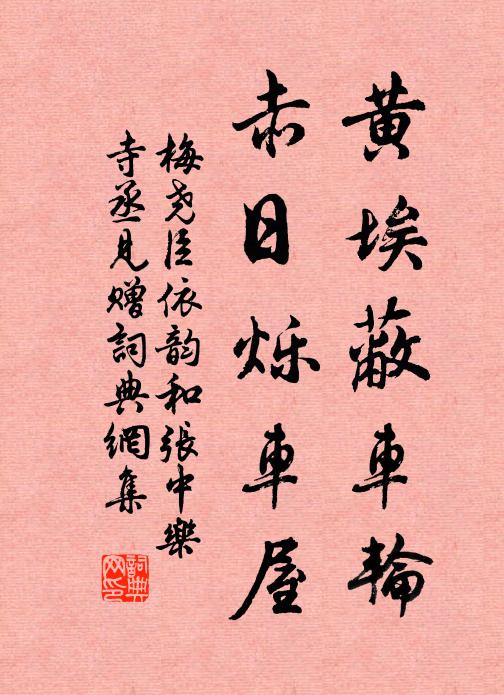 黄埃蔽車輪
赤日爍車屋
梅尧臣依韵和張中樂
寺丞見贈詞典網集
詞典网印